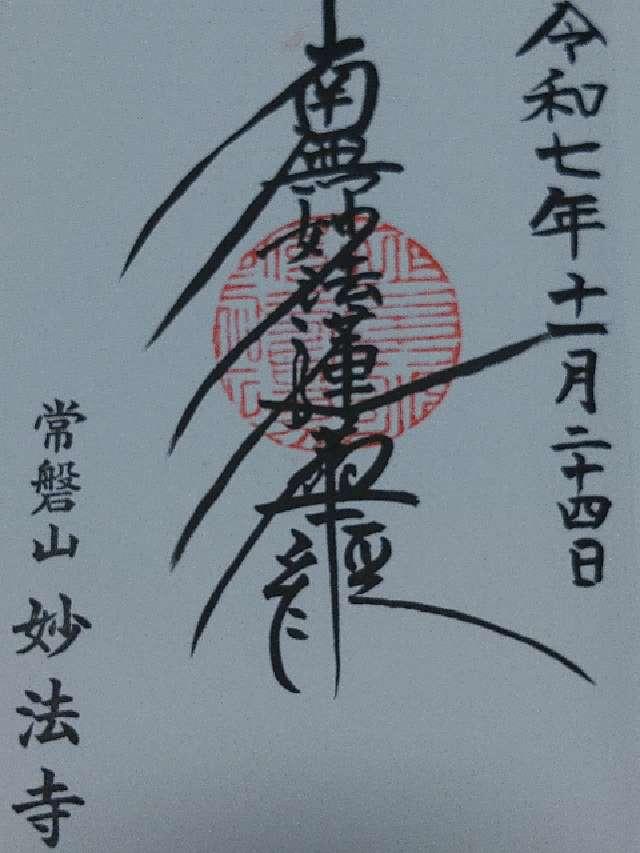 令和七年十一月二十四日
南無妙法蓮華経
常磐山 妙法寺